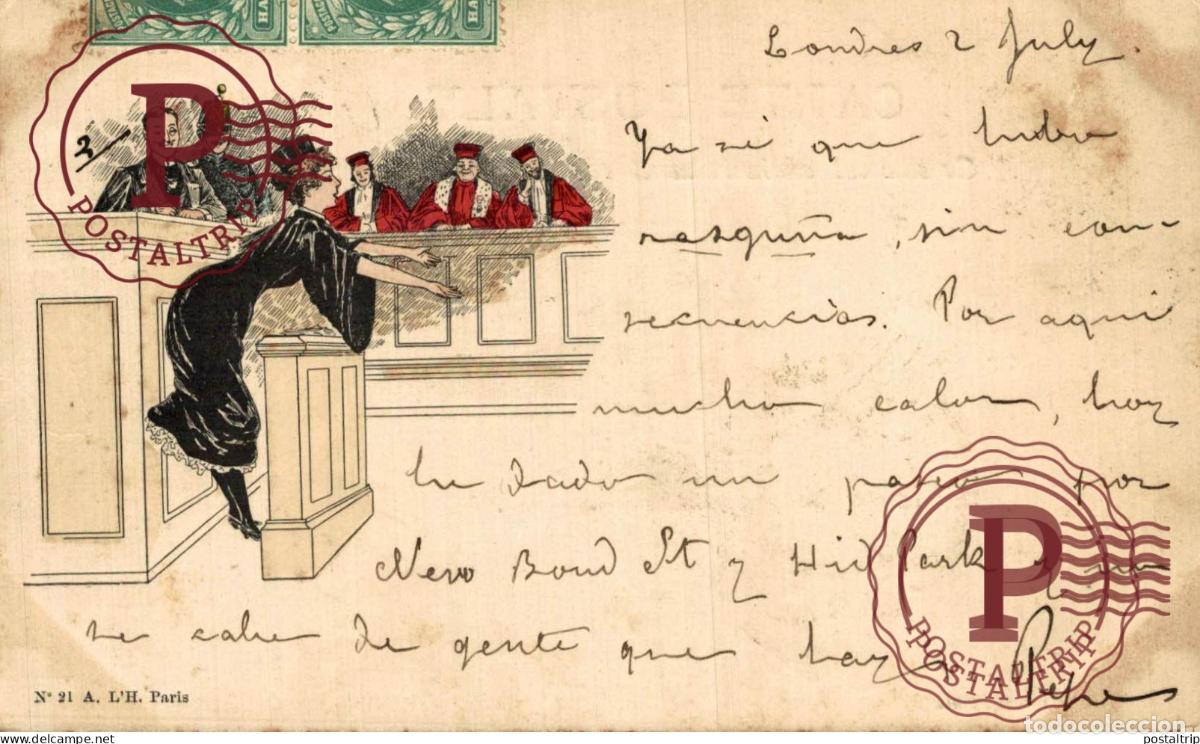 Londres 2 July.
3
Ya sé que hubo
rasguña, sin con-
secuencias. Por aquí
mucho calor, hoy
he dado un paseo por
New Bond St y Hid Park y no
se cabe de gente que hay
Pepe
Nº 21 A. L'H. Paris
POSTALTRIP
POSTALTRIP
todocoleccion
www.todocoleccion.net
postaltrip